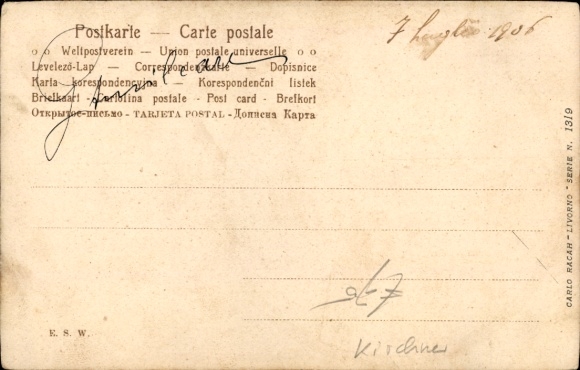 Postkarte — Carte postale
o o Weltpostverein — Union postale universelle o o
Levelező-Lap — Correspondenzkarte — Dopisnice
Karta korespondencyjna — Korespondenční lístek
Briefkaart - Cartolina postale - Post card - Brefkort
Открытое-письмо - TARJETA POSTAL - Дописна Карта
7 Luglio 1906
CARLO RACAH - LIVORNO - SERIE N. 1319
E. S. W.
Kirchner